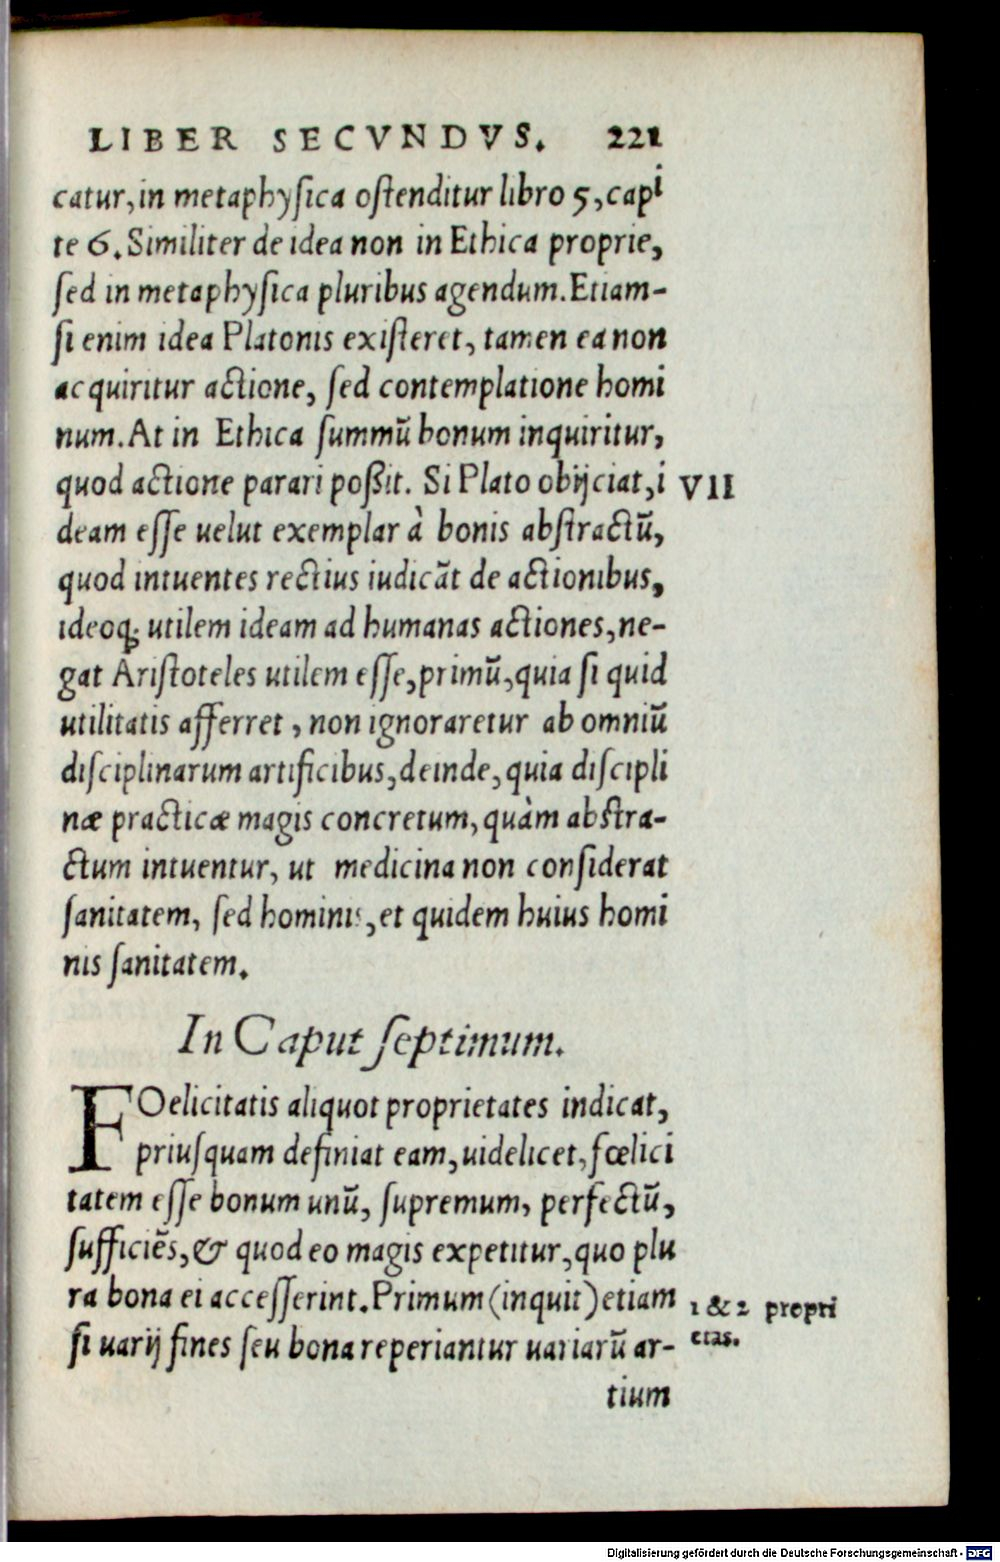 LIBER SECVNDVS. 221
catur, in metaphysica ostenditur libro 5, capi
te 6. Similiter de idea non in Ethica proprie,
sed in metaphysica pluribus agendum. Etiam-
si enim idea Platonis existeret, tamen ea non
acquiritur actione, sed contemplatione homi
num. At in Ethica summū bonum inquiritur,
quod actione parari poßit. Si Plato obijciat, i VII
deam esse uelut exemplar à bonis abstractū,
quod intuentes rectius iudicāt de actionibus,
ideoq; utilem ideam ad humanas actiones, ne-
gat Aristoteles utilem esse, primū, quia si quid
utilitatis afferret, non ignoraretur ab omniū
disciplinarum artificibus, deinde, quia discipli
næ practicæ magis concretum, quàm abstra-
ctum intuentur, ut medicina non considerat
sanitatem, sed hominis, et quidem huius homi
nis sanitatem.
In Caput septimum.
FOelicitatis aliquot proprietates indicat,
priusquam definiat eam, uidelicet, fœlici
tatem esse bonum unū, supremum, perfectū,
sufficiēs, & quod eo magis expetitur, quo plu
ra bona ei accesserint. Primum (inquit) etiam
1 & 2 propri
etas.
si uarij fines seu bona reperiantur uariarū ar-
tium
Digitalisierung gefördert durch die Deutsche Forschungsgemeinschaft - DFG